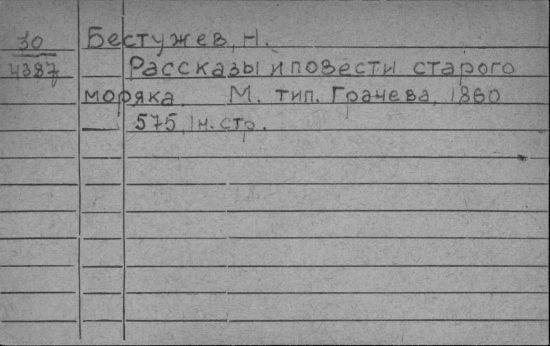 30 Бестужев, Н.
4387 Рассказы и повести старого
моряка. М. тип. Грачева, 1860
575, 1н. стр.